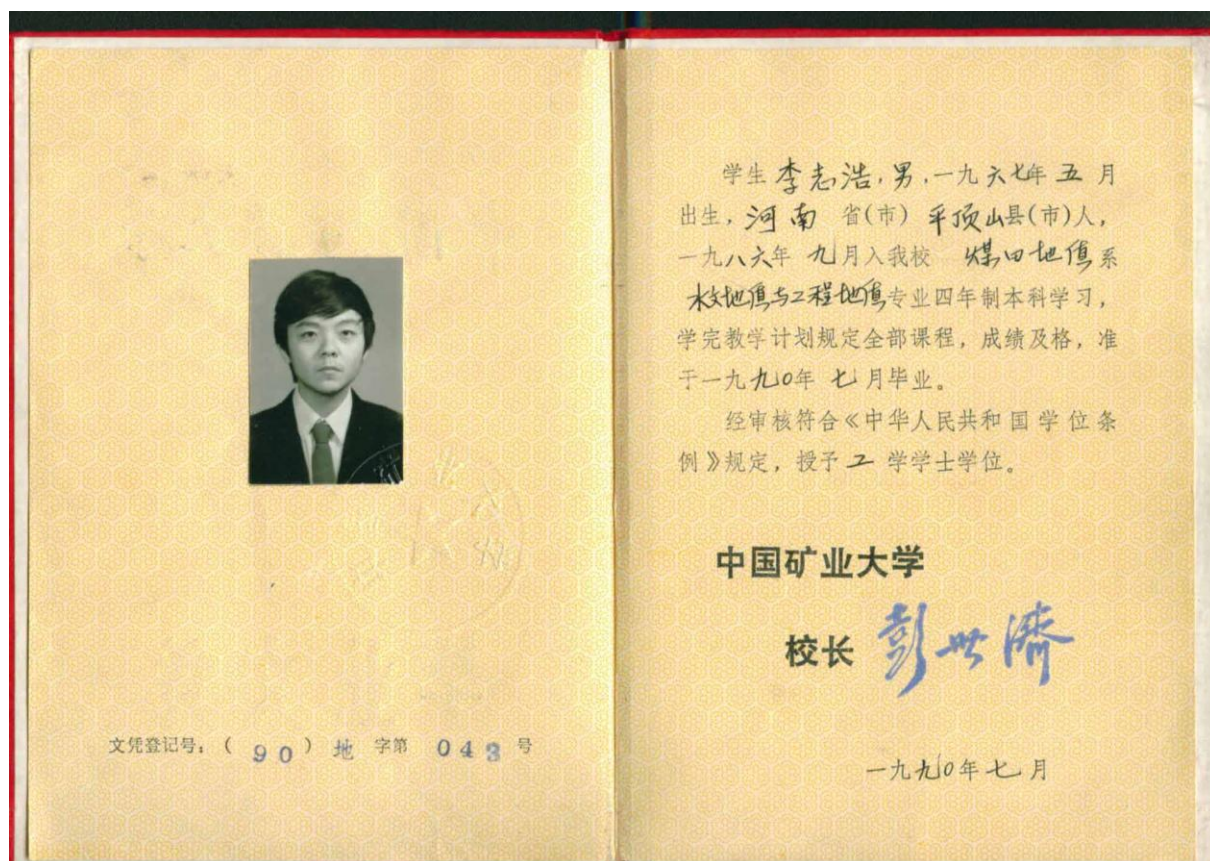 文凭登记号：（90）地 字第 043 号
学生 李志浩，男，一九六七年 五 月
出生，河南 省(市) 平顶山县(市)人，
一九八六年 九月入我校 煤田地质系
水文地质与工程地质专业四年制本科学习，
学完教学计划规定全部课程，成绩及格，准
于一九九0年 七月毕业。
经审核符合《中华人民共和国学位条
例》规定，授予 工 学学士学位。
中国矿业大学
校长 彭世济
一九九0年七月